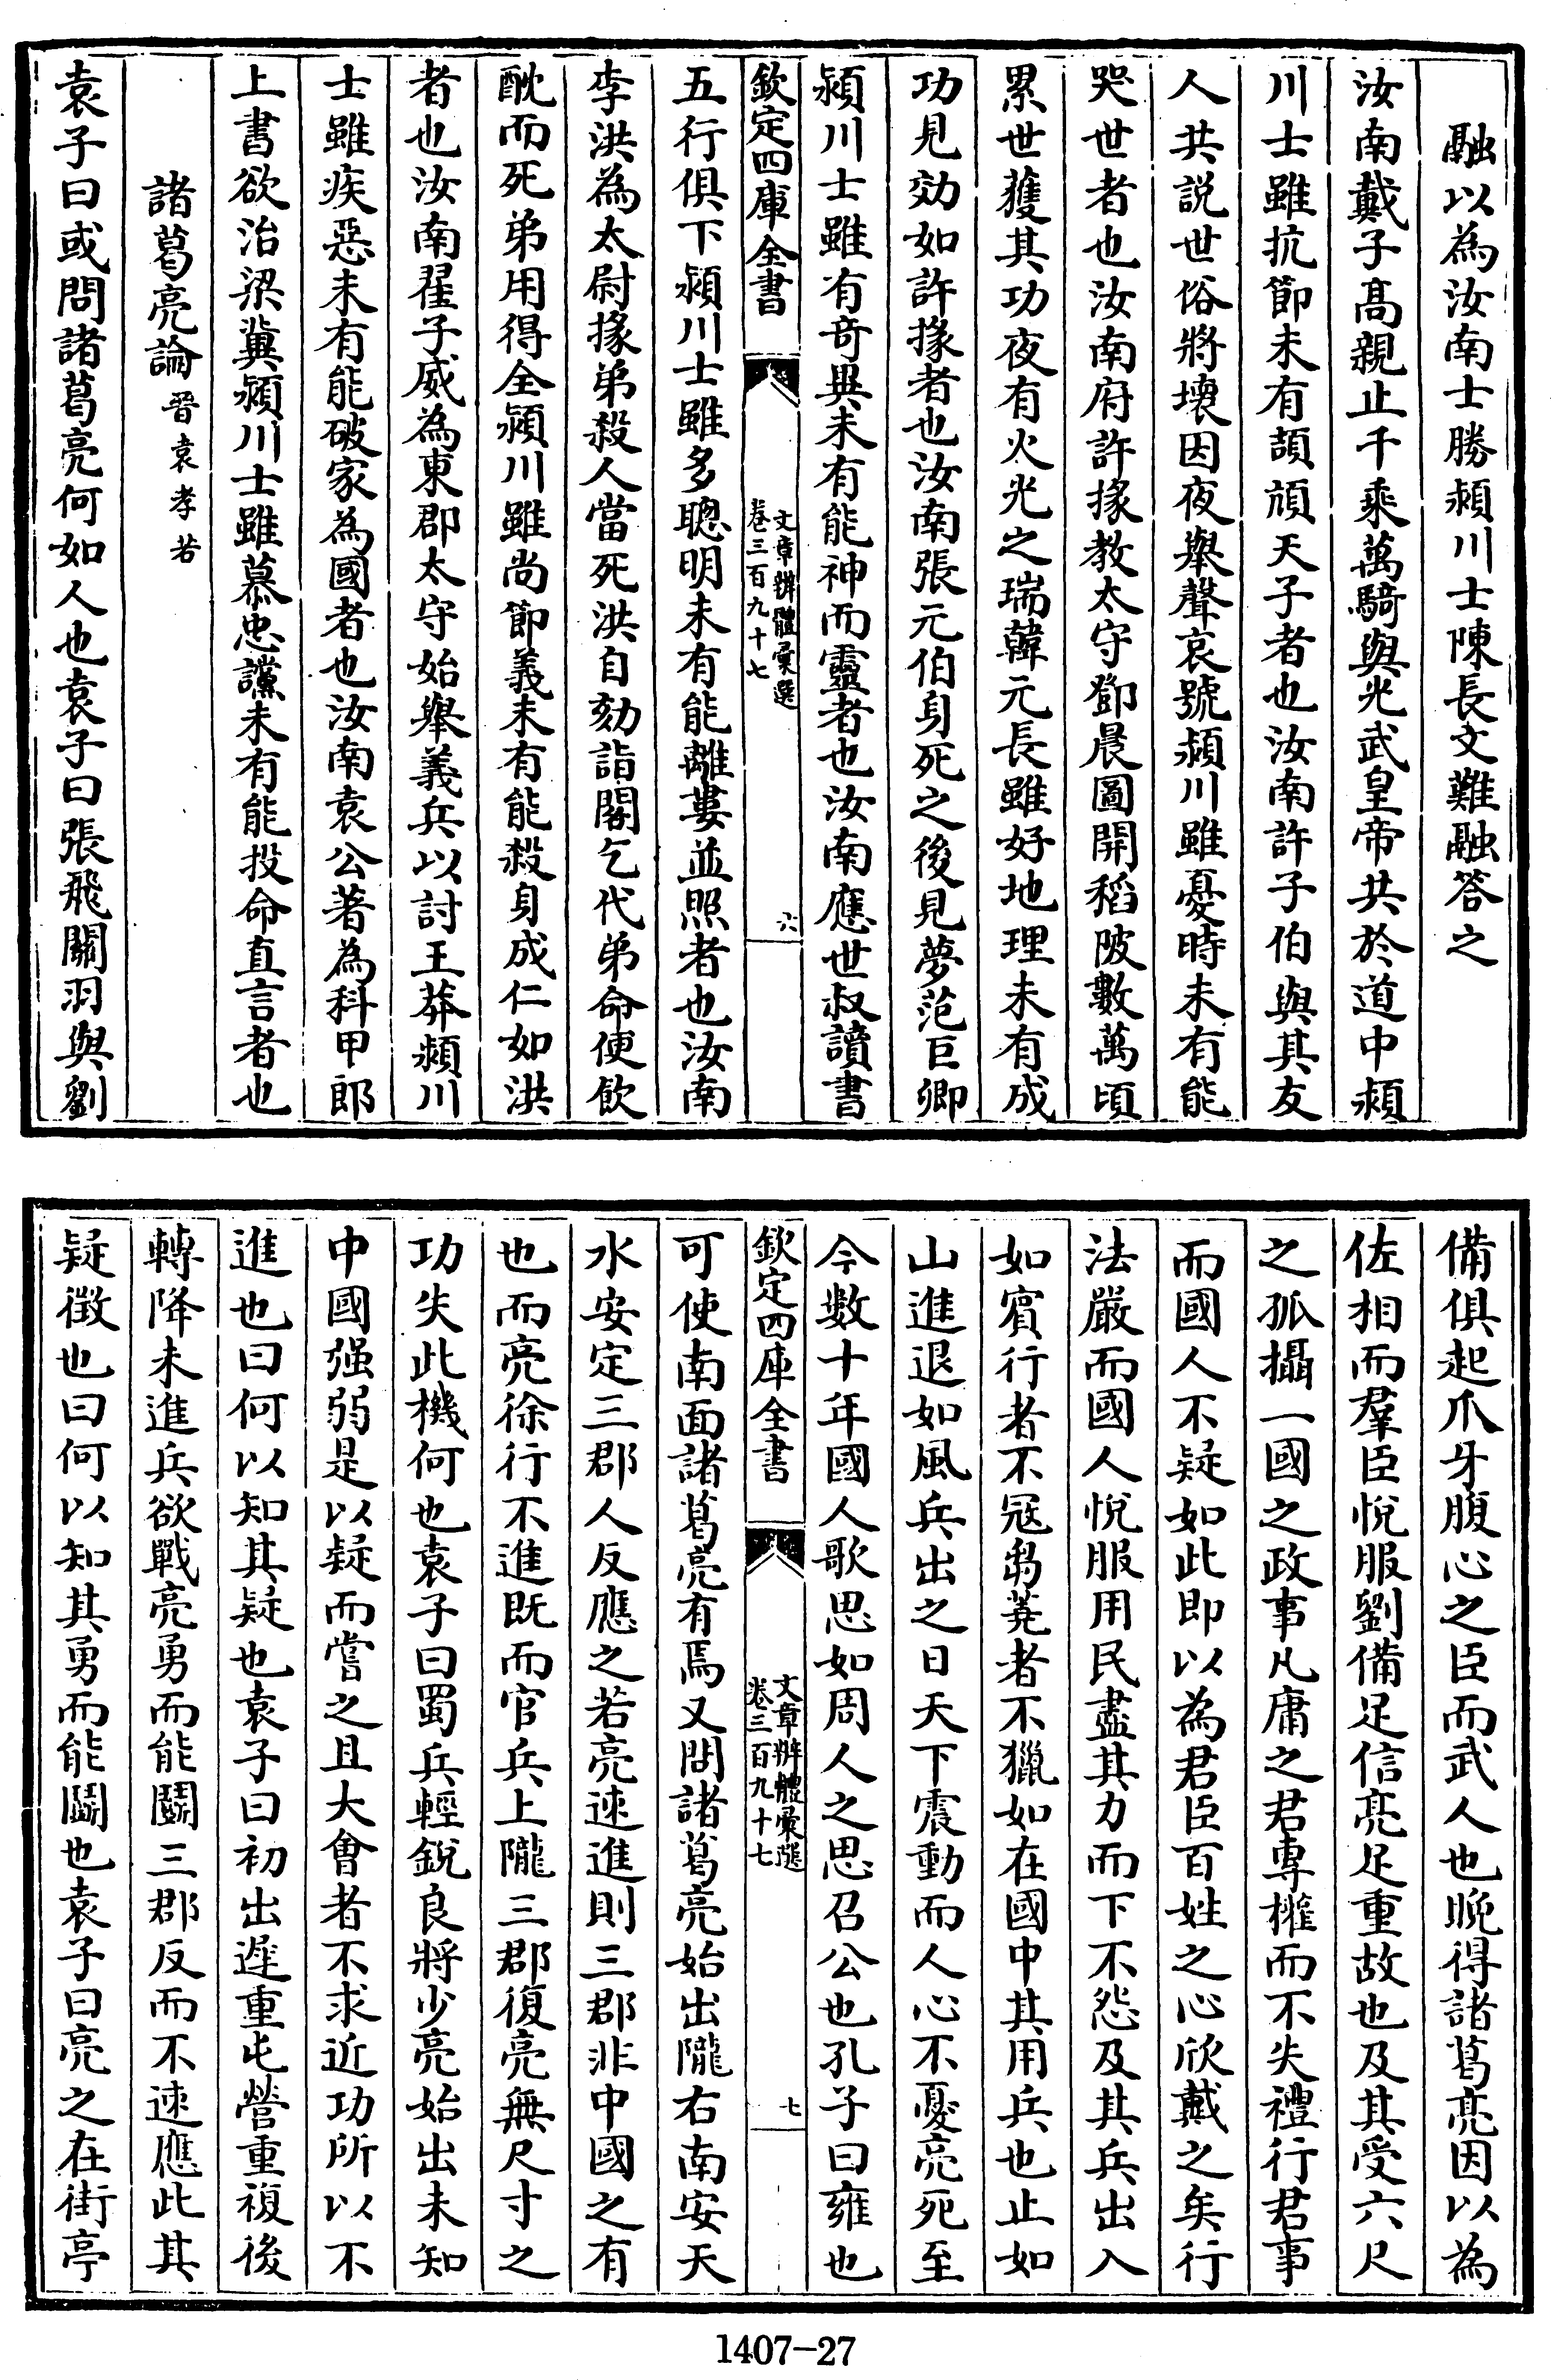 融以為汝南士勝潁川士陳長文難融答之
汝南戴子髙親止千乗萬騎與光武皇帝共於道中潁
川士雖抗節未有頡頏天子者也汝南許子伯與其友
人共説世俗將壊因夜舉聲哀號潁川雖憂時未有能
哭世者也汝南府許掾教太守鄧晨圖開稻陂數萬頃
累世獲其功夜有火光之瑞韓元長雖好地理未有成
功見効如許掾者也汝南張元伯身死之後見夢范巨卿
潁川士雖有奇異未有能神而靈者也汝南應世叔讀書
欽定四庫全書
文章辨體彚選
卷三百九十七
六
五行俱下潁川士雖多聰明未有能離婁並照者也汝南
李洪為太尉掾弟殺人當死洪自劾詣閣乞代弟命便飲
酖而死弟用得全潁川雖尚節義未有能殺身成仁如洪
者也汝南翟子威為東郡太守始舉義兵以討王莽潁川
士雖疾惡未有能破家為國者也汝南袁公著為科甲郎
上書欲治梁冀潁川士雖慕忠讜未有能投命直言者也
諸葛亮論晉袁孝若
袁子曰或問諸葛亮何如人也袁子曰張飛關羽與劉
備俱起爪牙腹心之臣而武人也晚得諸葛亮因以為
佐相而羣臣悅服劉備足信亮足重故也及其受六尺
之孤攝一國之政事凡庸之君専權而不失禮行君事
而國人不疑如此即以為君臣百姓之心欣戴之矣行
法嚴而國人悅服用民盡其力而下不怨及其兵出入
如賓行者不冦芻蕘者不獵如在國中其用兵也止如
山進退如風兵出之日天下震動而人心不憂亮死至
今數十年國人歌思如周人之思召公也孔子曰雍也
欽定四庫全書
文章辨體彚選
卷三百九十七
七
可使南面諸葛亮有焉又問諸葛亮始出隴右南安天
水安定三郡人反應之若亮速進則三郡非中國之有
也而亮徐行不進既而官兵上隴三郡復亮無尺寸之
功失此機何也袁子曰蜀兵輕銳良將少亮始出未知
中國强弱是以疑而嘗之且大㑹者不求近功所以不
進也曰何以知其疑也袁子曰初出遲重屯營重複後
轉降未進兵欲戰亮勇而能鬭三郡反而不速應此其
疑徴也曰何以知其勇而能鬭也袁子曰亮之在街亭
1407-27